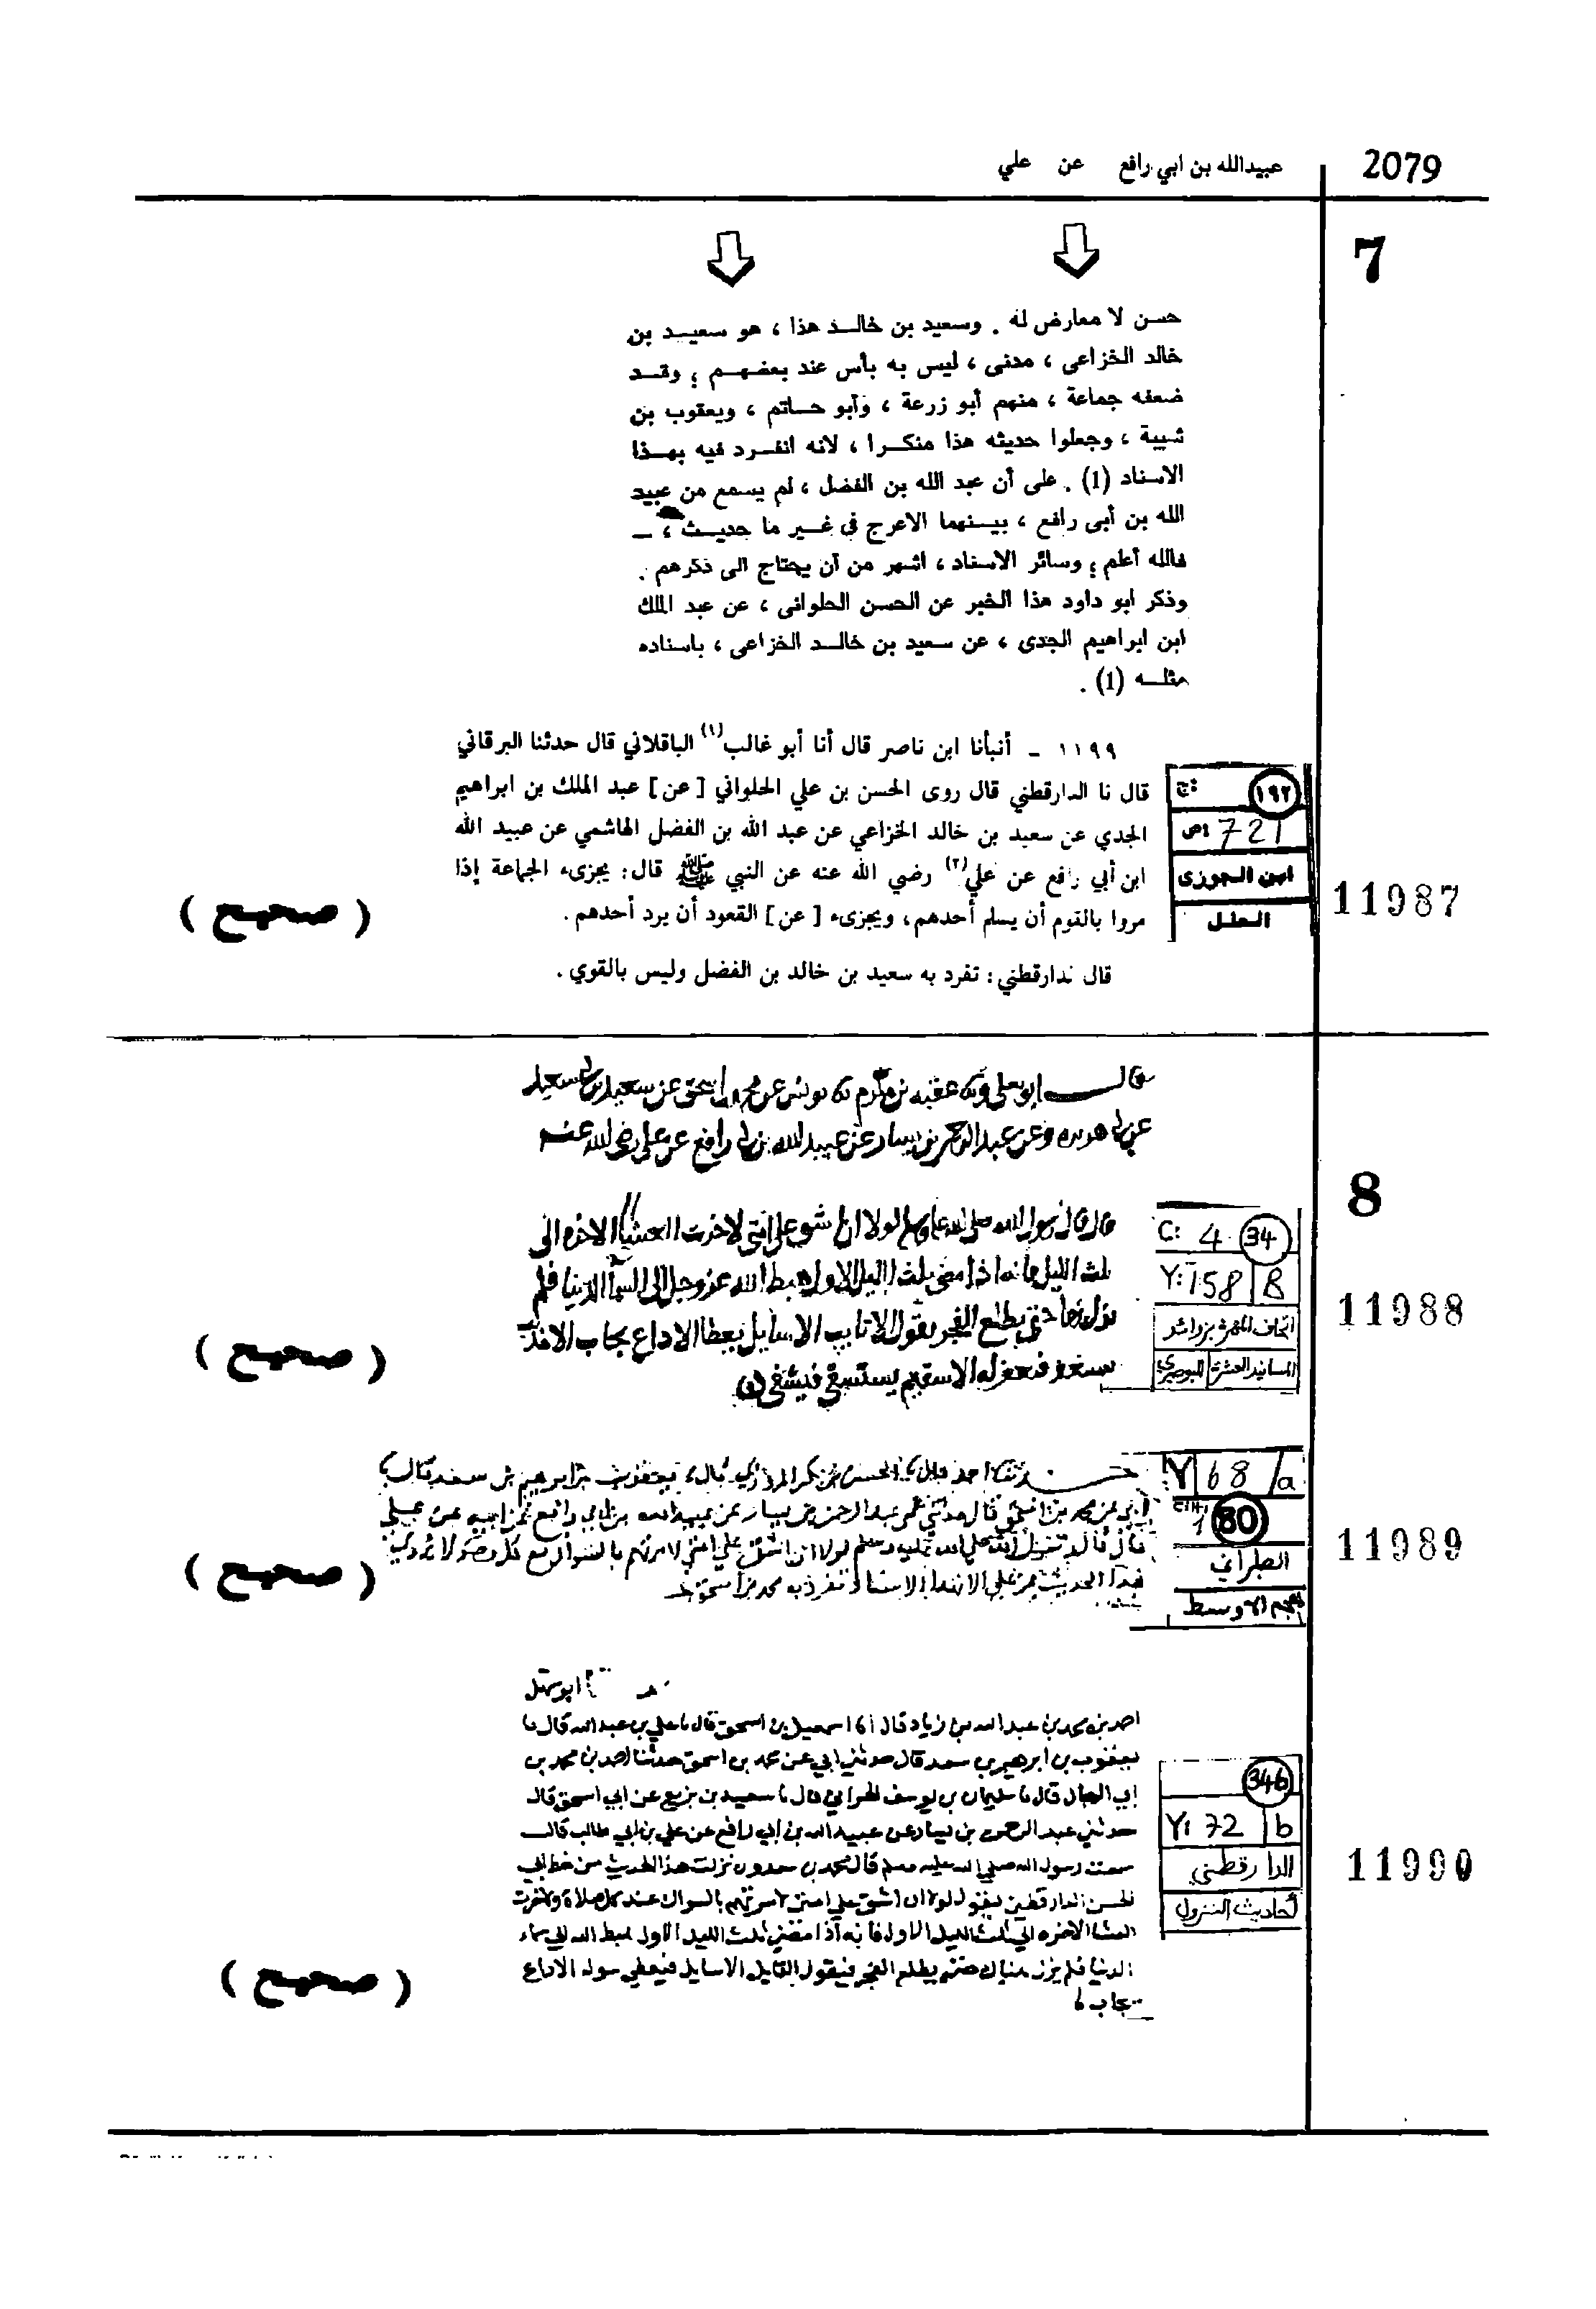 2079
عبيدالله بن ابي رافع عن علي
7
حسن لا معارض له . وسعيد بن خالد هذا ، هو سعيد بن
خالد الخزاعى ، مدنى ، ليس به بأس عند بعضهم ؛ وقد
ضعفه جماعة ، منهم أبو زرعة ، وأبو حاتم ، ويعقوب بن
شيبة ، وجعلوا حديثه هذا منكرا ، لانه انفرد فيه بهذا
الاسناد (1) . على أن عبد الله بن الفضل ، لم يسمع من عبيد
الله بن أبى رافع ، بينهما الاعرج فى غير ما حديث ، ـ
فالله أعلم ؛ وسائر الاسناد ، اشهر من أن يحتاج الى ذكرهم .
وذكر ابو داود هذا الخبر عن الحسن الحلوانى ، عن عبد الملك
ابن ابراهيم الجدى ، عن سعيد بن خالد الخزاعى ، باسناده
مثله (1) .
١١٩٩ ـ أنبأنا ابن ناصر قال أنا أبو غالب(١) الباقلاني قال حدثنا البرقاني
قال نا الدارقطني قال روى الحسن بن علي الحلواني [ عن ] عبد الملك بن ابراهيم
الجدي عن سعيد بن خالد الخزاعي عن عبد الله بن الفضل الهاشمي عن عبيد الله
ابن أبي رافع عن علي(٢) رضي الله عنه عن النبي ﷺ قال: يجزىء الجماعة إذا
مروا بالقوم أن يسلم أحدهم، ويجزىء [ عن ] القعود أن يرد أحدهم.
قال ندارقطني: تفرد به سعيد بن خالد بن الفضل وليس بالقوي.
ج: ١٩٢
ص: 721
ابن الجوزى
العلل
11987
( صحيح )
8
قال ابو يعلى عقبه بن مكرم يونس عن محمد بن اسحق عن سعيد بن ابي سعيد
عن ابي هريره وعن عبد الرحمن بن يسار عن عبيد الله بن ابي رافع عن علي رضي الله عنه
قال قال رسول الله صلى الله عليه وسلم لولا ان اشق على امتي لاخرت العشا الاخره الى
ثلث الليل فانه اذا مضى ثلث الليل الاول هبط الله عز وجل الى السما الدنيا فلم
يزل بها حتى يطلع الفجر يقول الا تايب الا سايل يعطا الا داع يجاب الا مذنب
يستغفر فيغفر له الا سقيم يستشفي فيشفى
C: 4 34
Y: 158 B
اتحاف المهرة بزوائد
المسانيد العشرة البوصيري
11988
( صحيح )
احمد قال الحسن بن قال يعقوب بن ابرهيم بن سعد قال
ابي عن محمد بن اسحق قال حدثني عمي عبد الرحمن بن يسار عن عبيد الله بن ابي رافع عن ابيه عن علي
قال قال رسول الله صلى الله عليه وسلم لولا ان اشق على امتي لامرتهم بالسواك مع كل وضو لا يروى
هذا الحديث عن علي الا بهذا الاسناد تفرد به محمد بن اسحق
Y: 68 /a
80
1
الطبراني
المعجم الاوسط
11989
( صحيح )
ابو سهل
احمد بن محمد بن عبد الله بن زياد قال انا اسمعيل بن اسحق قال نا علي بن عبد الله قال نا
يعقوب بن ابرهيم بن سعد قال حدثني ابي عن محمد بن اسحق حدثنا احمد بن محمد بن
ابي قال نا سليمان بن يوسف الحراني قال نا سعيد بن بزيع عن ابي اسحق قال
حدثني عبد الرحمن بن يسار عن عبيد الله بن ابي رافع عن علي بن ابي طالب قال
سمعت رسول الله صلى الله عليه وسلم قال محمد بن حمدون نزلت هذا الحديث من خط ابي
الحسن الدارقطني يقول لولا ان اشق على امتي لامرتهم بالسواك عند كل صلاة ولاخرت
العشا الاخره الى ثلث الليل الاول فانه اذا مضى ثلث الليل الاول هبط الله الى سماء
الدنيا فلم يزل هناك حتى يطلع الفجر فيقول القايل الا سايل فيعطى سوله الا داع
يجاب
346
Y: 72 b
الدارقطني
أحاديث النزول
11990
( صحيح )